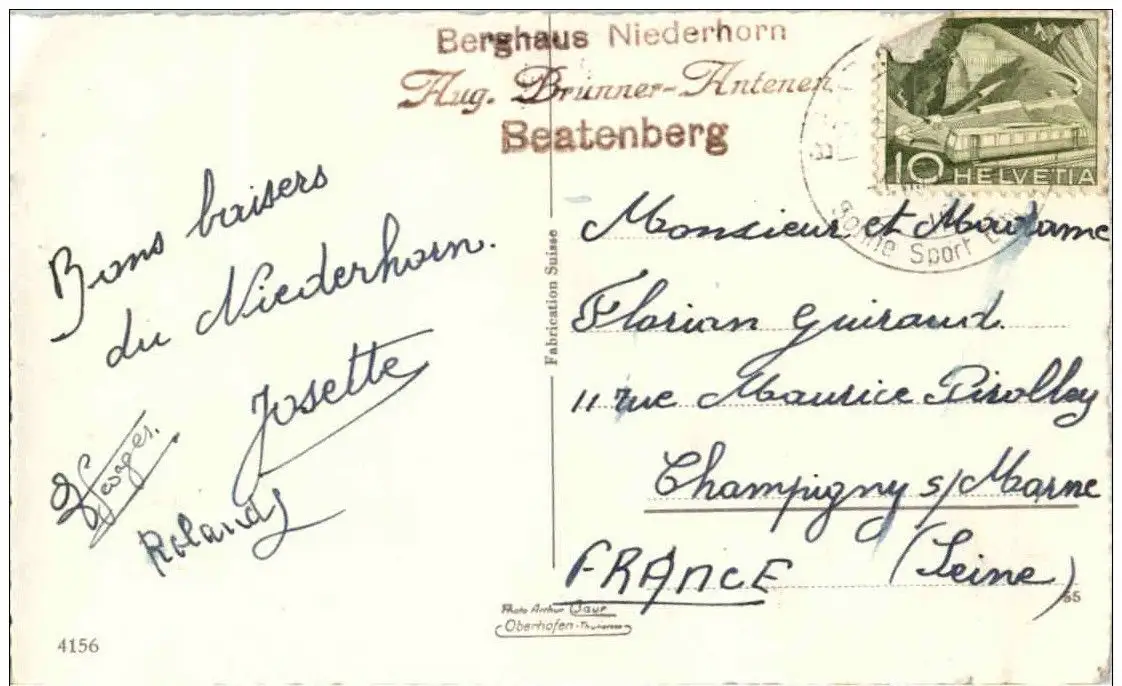 Berghaus Niederhorn
Aug. Brunner-Antenen
Beatenberg
10 HELVETIA
Sonne Sport
Bons baisers
du Niederhorn.
Josette
Georges.
Roland
Fabrication Suisse
Monsieur et Madame
Florian Guiraud.
11 rue Maurice Pirolley
Champigny s/Marne
(Seine)
FRANCE
55
Photo Arthur Baur
Oberhofen-Thunersee
4156